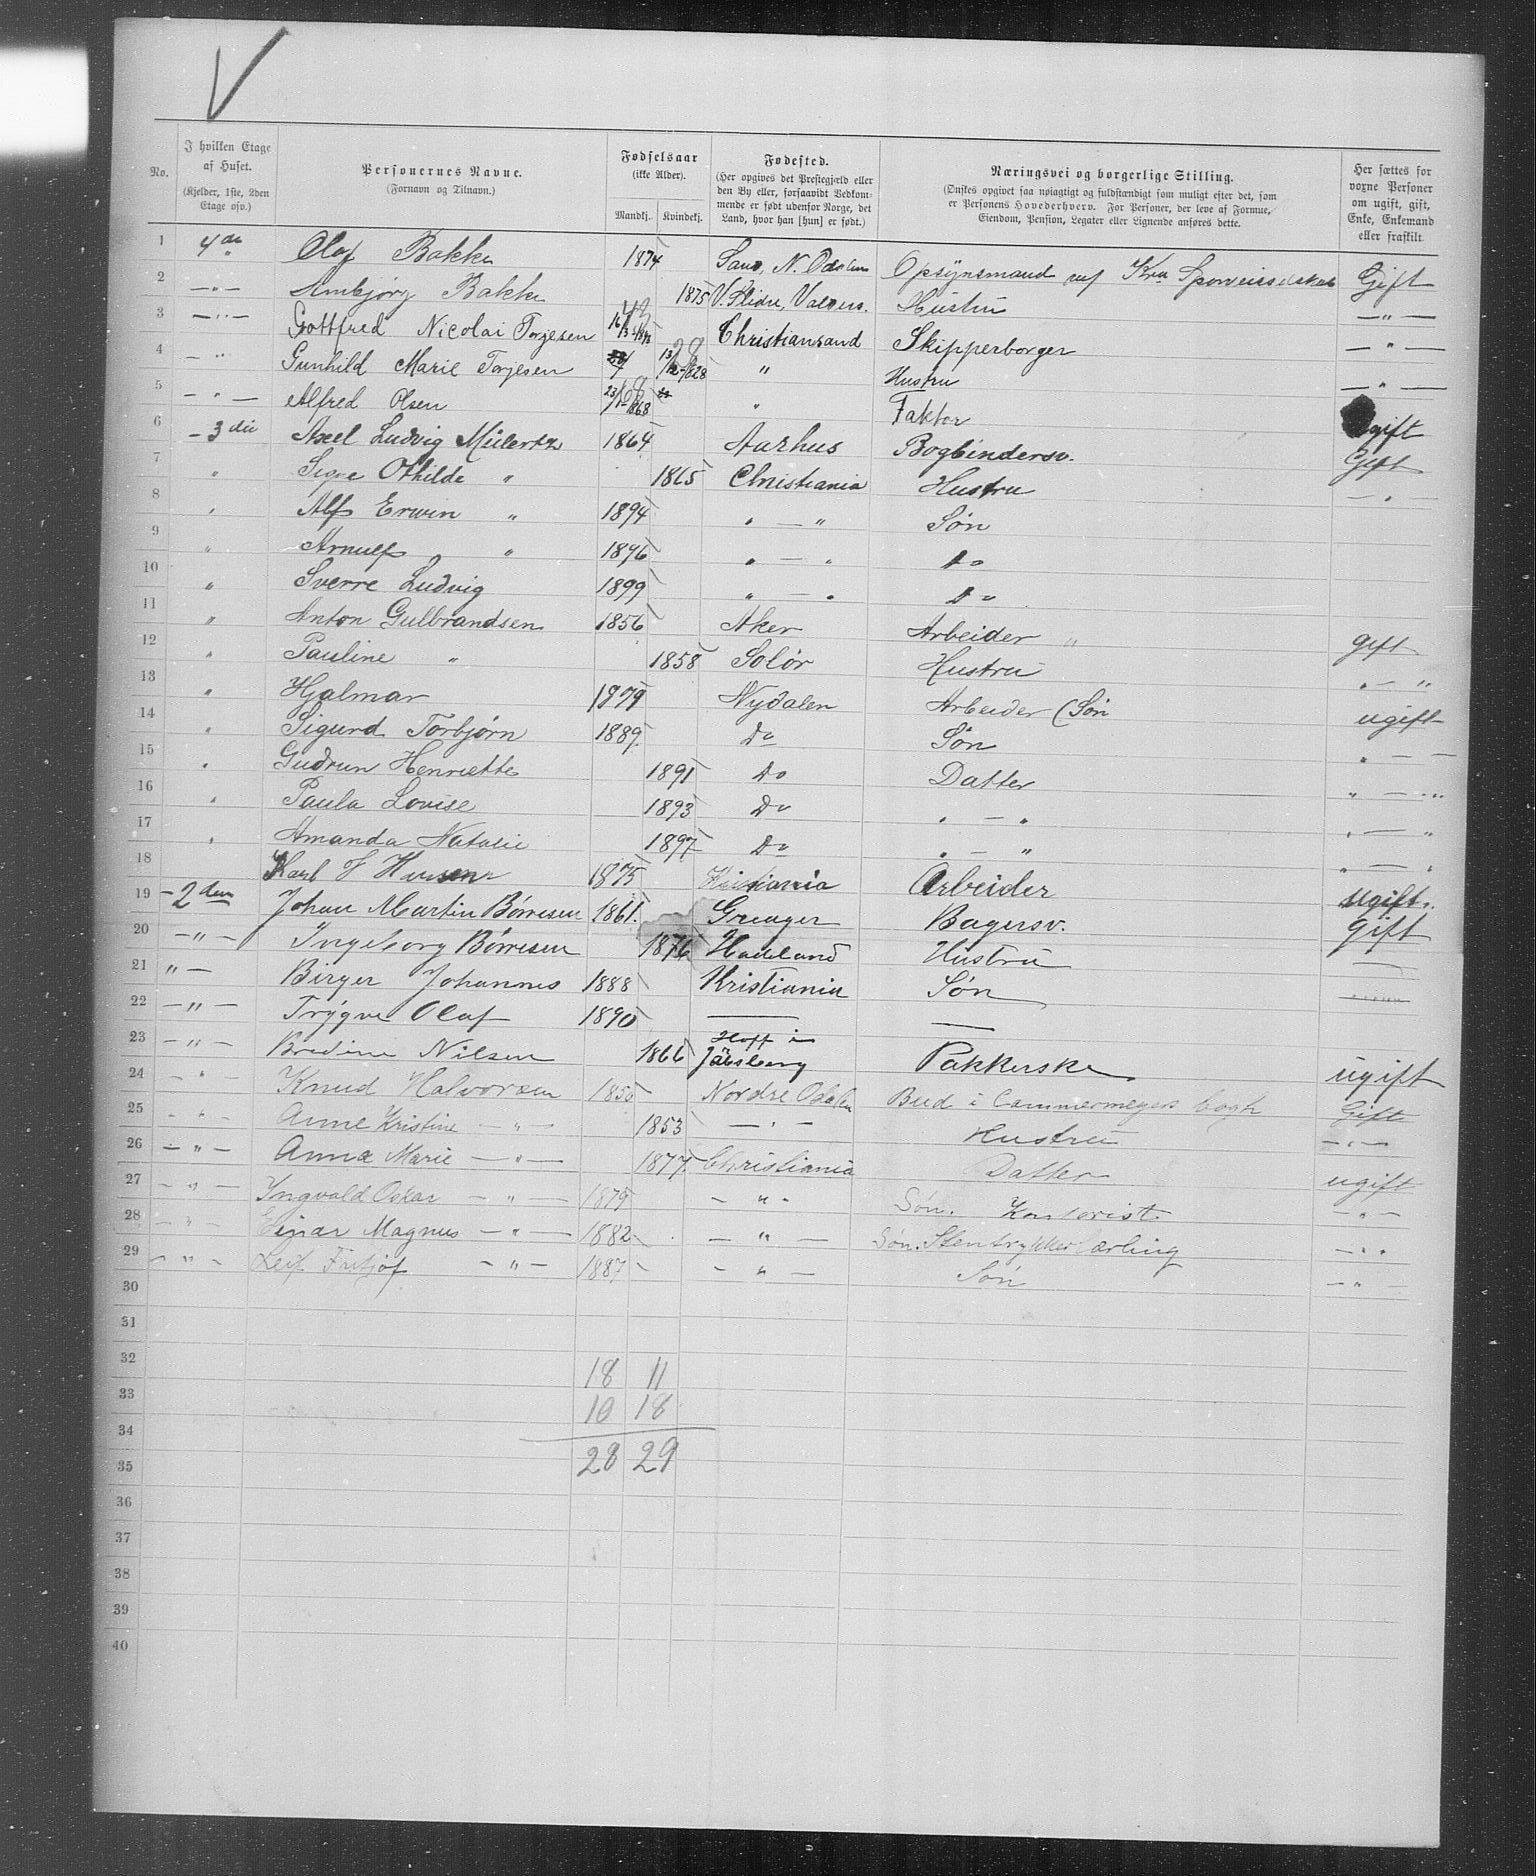 No. | I hvilken Etage af Huset. (Kjelder, 1ste, 2den Etage osv.) | Personernes Navne. (Fornavn og Tilnavn.) | Fødselsaar (ikke Alder). Mandkj. Kvindekj. | Fødested. (Her opgives det Prestegjæld eller den By eller, forsaavidt Vedkommende er født udenfor Norge, det Land, hvor han [hun] er født.) | Næringsvei og borgerlige Stilling. (Ønskes opgivet saa nøiagtigt og fuldstændigt som muligt efter det, som er Personens Hovederhverv. For Personer, der leve af Formue, Eiendom, Pension, Legater eller Lignende anføres dette.) | Her sættes for voxne Personer om ugift, gift, Enke, Enkemand eller fraskilt.
1 4de Olaf Bakke 1874 N. Odalen Opsynsmand Kra Gift
2 —"— Ambjørg Bakke 1875 V. Slidre, Valders. Hustru —"—
3 —"— Gottfred Nicolai Torjesen 16/3 43 Christiansand Skipperborger —"—
4 — " Gunhild Marie Torjesen 13/12-1828 28 " Hustru —"—
5 —"— Alfred Olsen 23/1-1868 68 " Faktor ugift
6 — 3die Axel Ludvig Mülertz 1864 Aarhus Bogbindersv. Gift
7 " Signe Othilde " 1865 Christiania Hustru — "
8 " Alf Erwin " 1894 " — " Søn
9 " Arnulf " 1896 " — " do
10 " Sverre Ludvig 1899 " — " do
11 " Anton Gulbrandsen 1856 Aker Arbeider " gift
12 " Pauline " 1858 Solør Hustru " — "
13 " Hjalmar 1879 Nydalen Arbeider (Søn ugift
14 " Sigurd Torbjørn 1889 Do Søn " — "
15 " Gudrun Henriette 1891 do Datter " — "
16 " Paula Lovise 1893 Do " — " " — "
17 " Amanda Natalie 1897 Do " — " " — "
18 Karl J Hansen 1875 Kristiania Arbeider ugift.
19 — 2den Johan Martin Børresen 1861. Greager Bagersv. Gift
20 —"— Ingeborg Børresen 1876 Hadeland Hustru —
21 "— Birger Johannes 1888 Kristiania Søn
22 —"— Trygve Olaf 1890 — —
23 —"— Bredine Nilsen 1866 Hoff i Jarlsberg Pakkerske ugift
24 —"— Knud Halvorsen 1850 Nordre Odalen Bud i Cammermeyers Bogh Gift
25 —"— Anne Kristine —"— 1853 —"— Hustru —"—
26 —"— Anna Marie —"— 1877. Christiania Datter ugift
27 —"— Yngvald Oskar —"— 1879 —"— Søn. Kontorist. —"—
28 —"— Einar Magnus —"— 1882 —"— Søn. Stentrykkerlærling —"—
29 —"— Leif Fritjof —"— 1887 —"— Søn —"
30
31
32 18 11
33 10 18
34 28 29
35
36
37
38
39
40